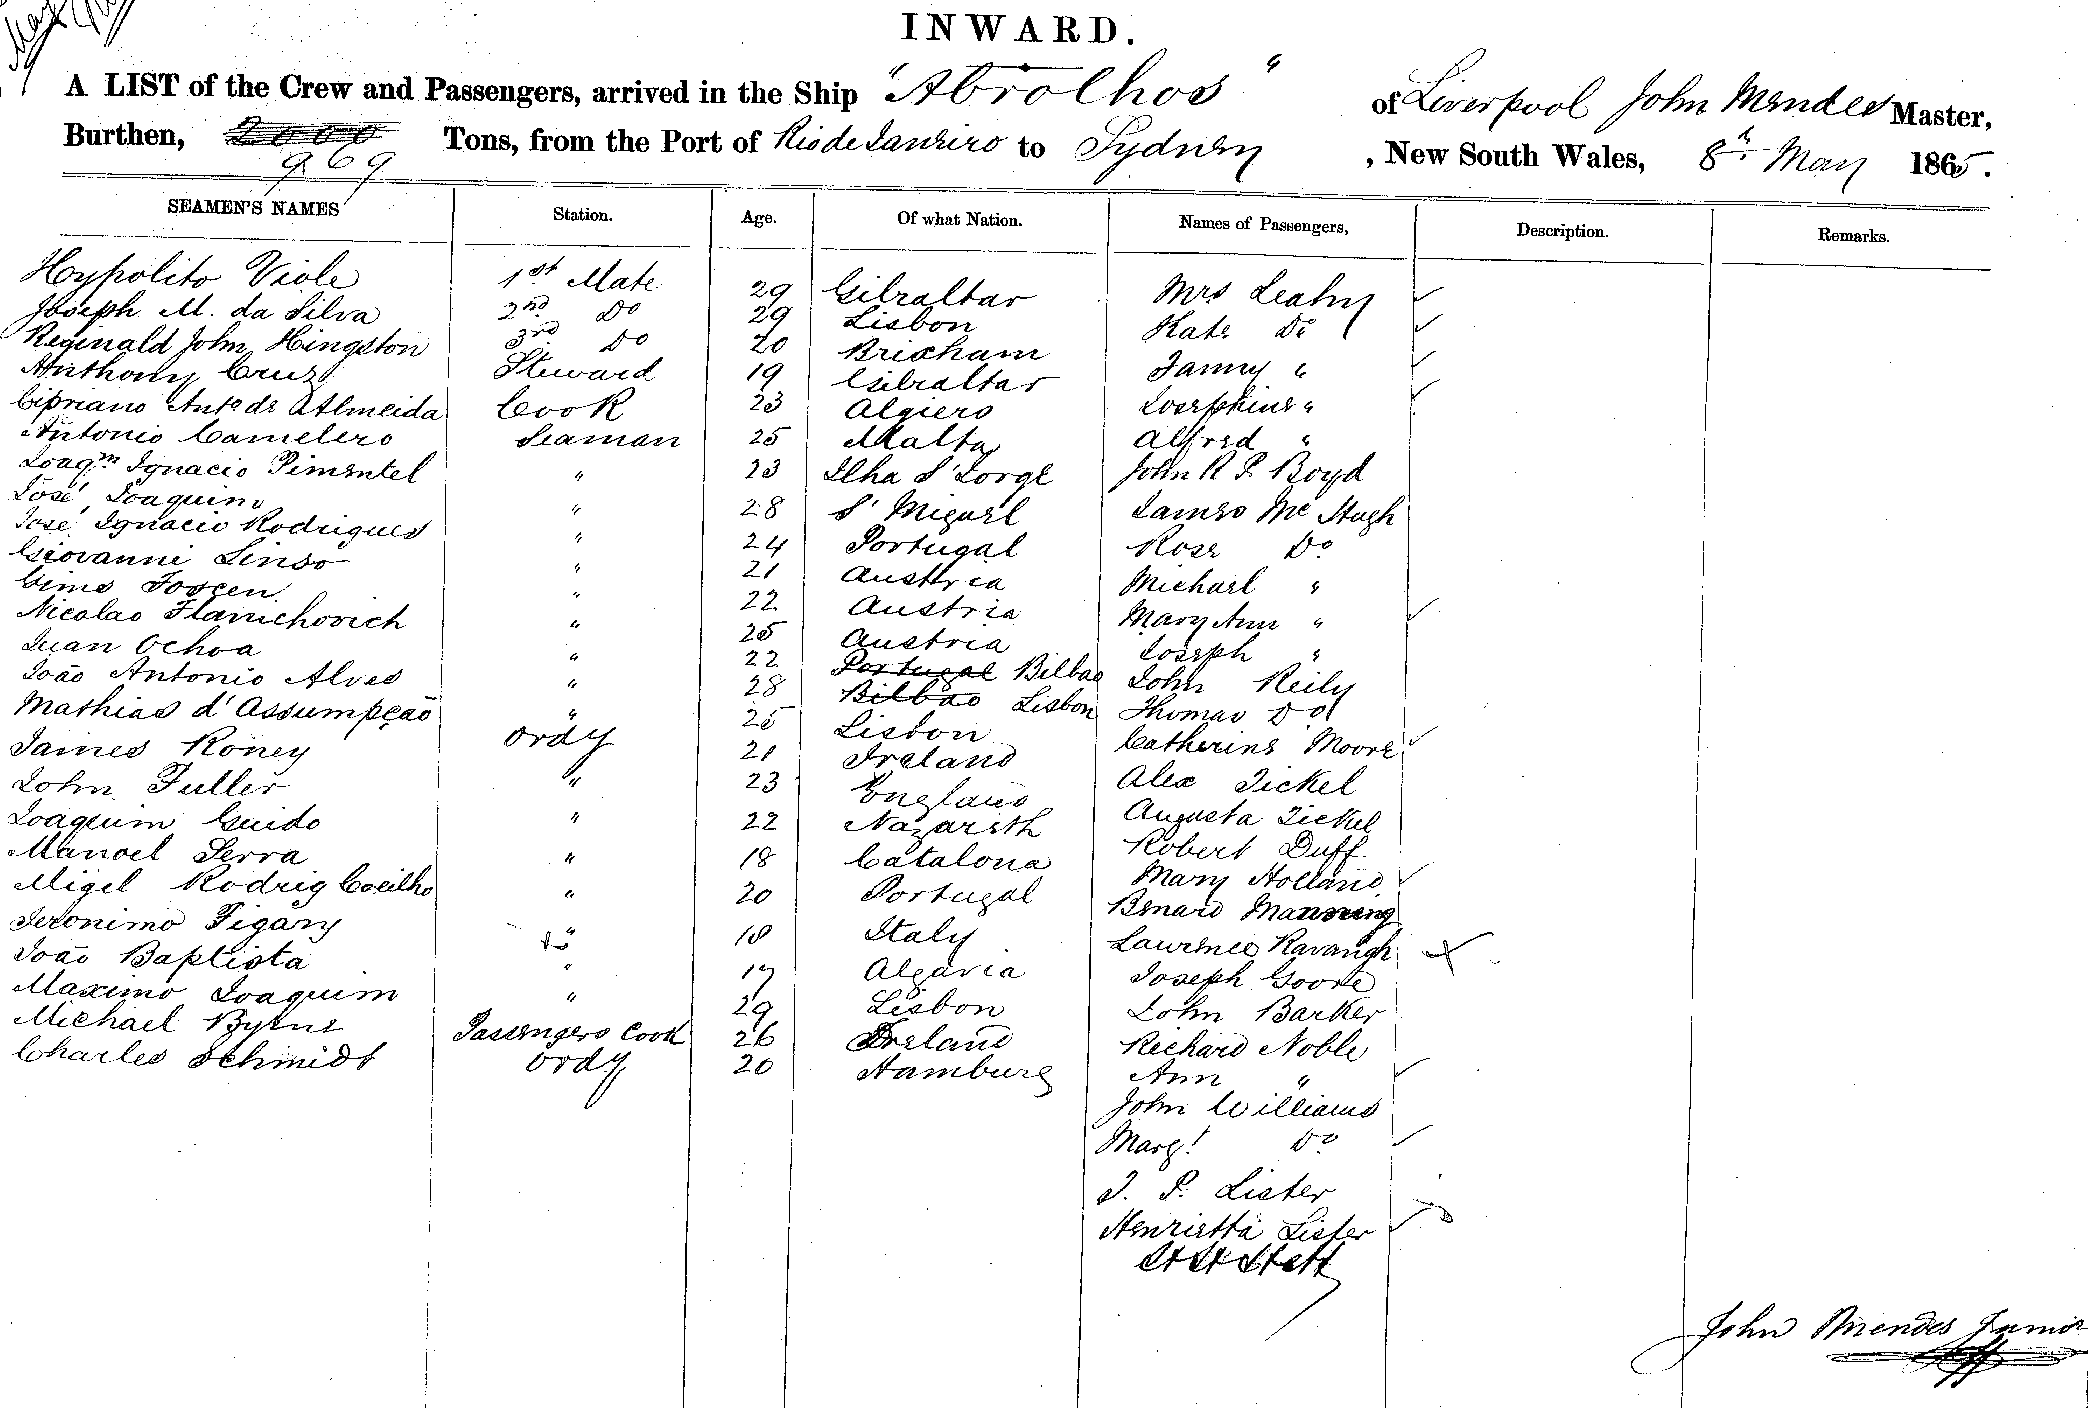 INWARD.
A LIST of the Crew and Passengers, arrived in the Ship "Abrolhos" of Liverpool John Mendes Master,
Burthen, 2000 969 Tons, from the Port of Rio de Janeiro to Sydney, New South Wales, 8th May 1865.
SEAMEN'S NAMES Station. Age. Of what Nation. Names of Passengers, Description. Remarks.
Hypolito Viole 1st Mate 29 Gibraltar Mrs Leahy
Joseph M. da Silva 2nd Do 29 Lisbon Kate Do
Reginald John Hingston 3rd Do 20 Brixham Fanny "
Anthony Cruz Steward 19 Gibraltar Josephine "
Cipriano Anto de Almeida Cook 23 Algiers Alfred "
Antonio Camelero Seaman 25 Malta John R P. Boyd
Joaqm Ignacio Pimentel " 23 Ilha S' Jorge James Mc Hugh
José Joaquim " 28 S' Miguel Rose Do
José Ignacio Rodrigues " 24 Portugal Michael "
Giovanni Sinso " 21 Austria Mary Ann "
Gimo " 22 Austria Joseph "
Nicolao Flanichovich " 25 Austria John Reily
Juan Ochoa " 22 Portugal Bilbao Thomas Do
João Antonio Alves " 28 Bilbao Lisbon Catherine Moore
Mathias d'Assumpção " 25 Lisbon Alex Tickel
James Roney Ordy 21 Ireland Augusta Tickel
John Fuller " 23 England Robert Duff
Joaquim Guido " 22 Nazareth Mary Holland
Manoel Serra " 18 Catalona Benard Manning
Migel Rodrig Coeilho " 20 Portugal Lawrence Kavangh
Jeronimo Figary " 18 Italy Joseph Goore
João Baptista " 17 Algavia John Barker
Maximo Joaquim " 29 Lisbon Richard Noble
Michael Byrne Passengers Cook 26 Ireland Ann "
Charles Schmidt Ordy 20 Hamburg John Williams
Margt Do
J. P. Lister
Henrietta Lister
John Mendes Junior